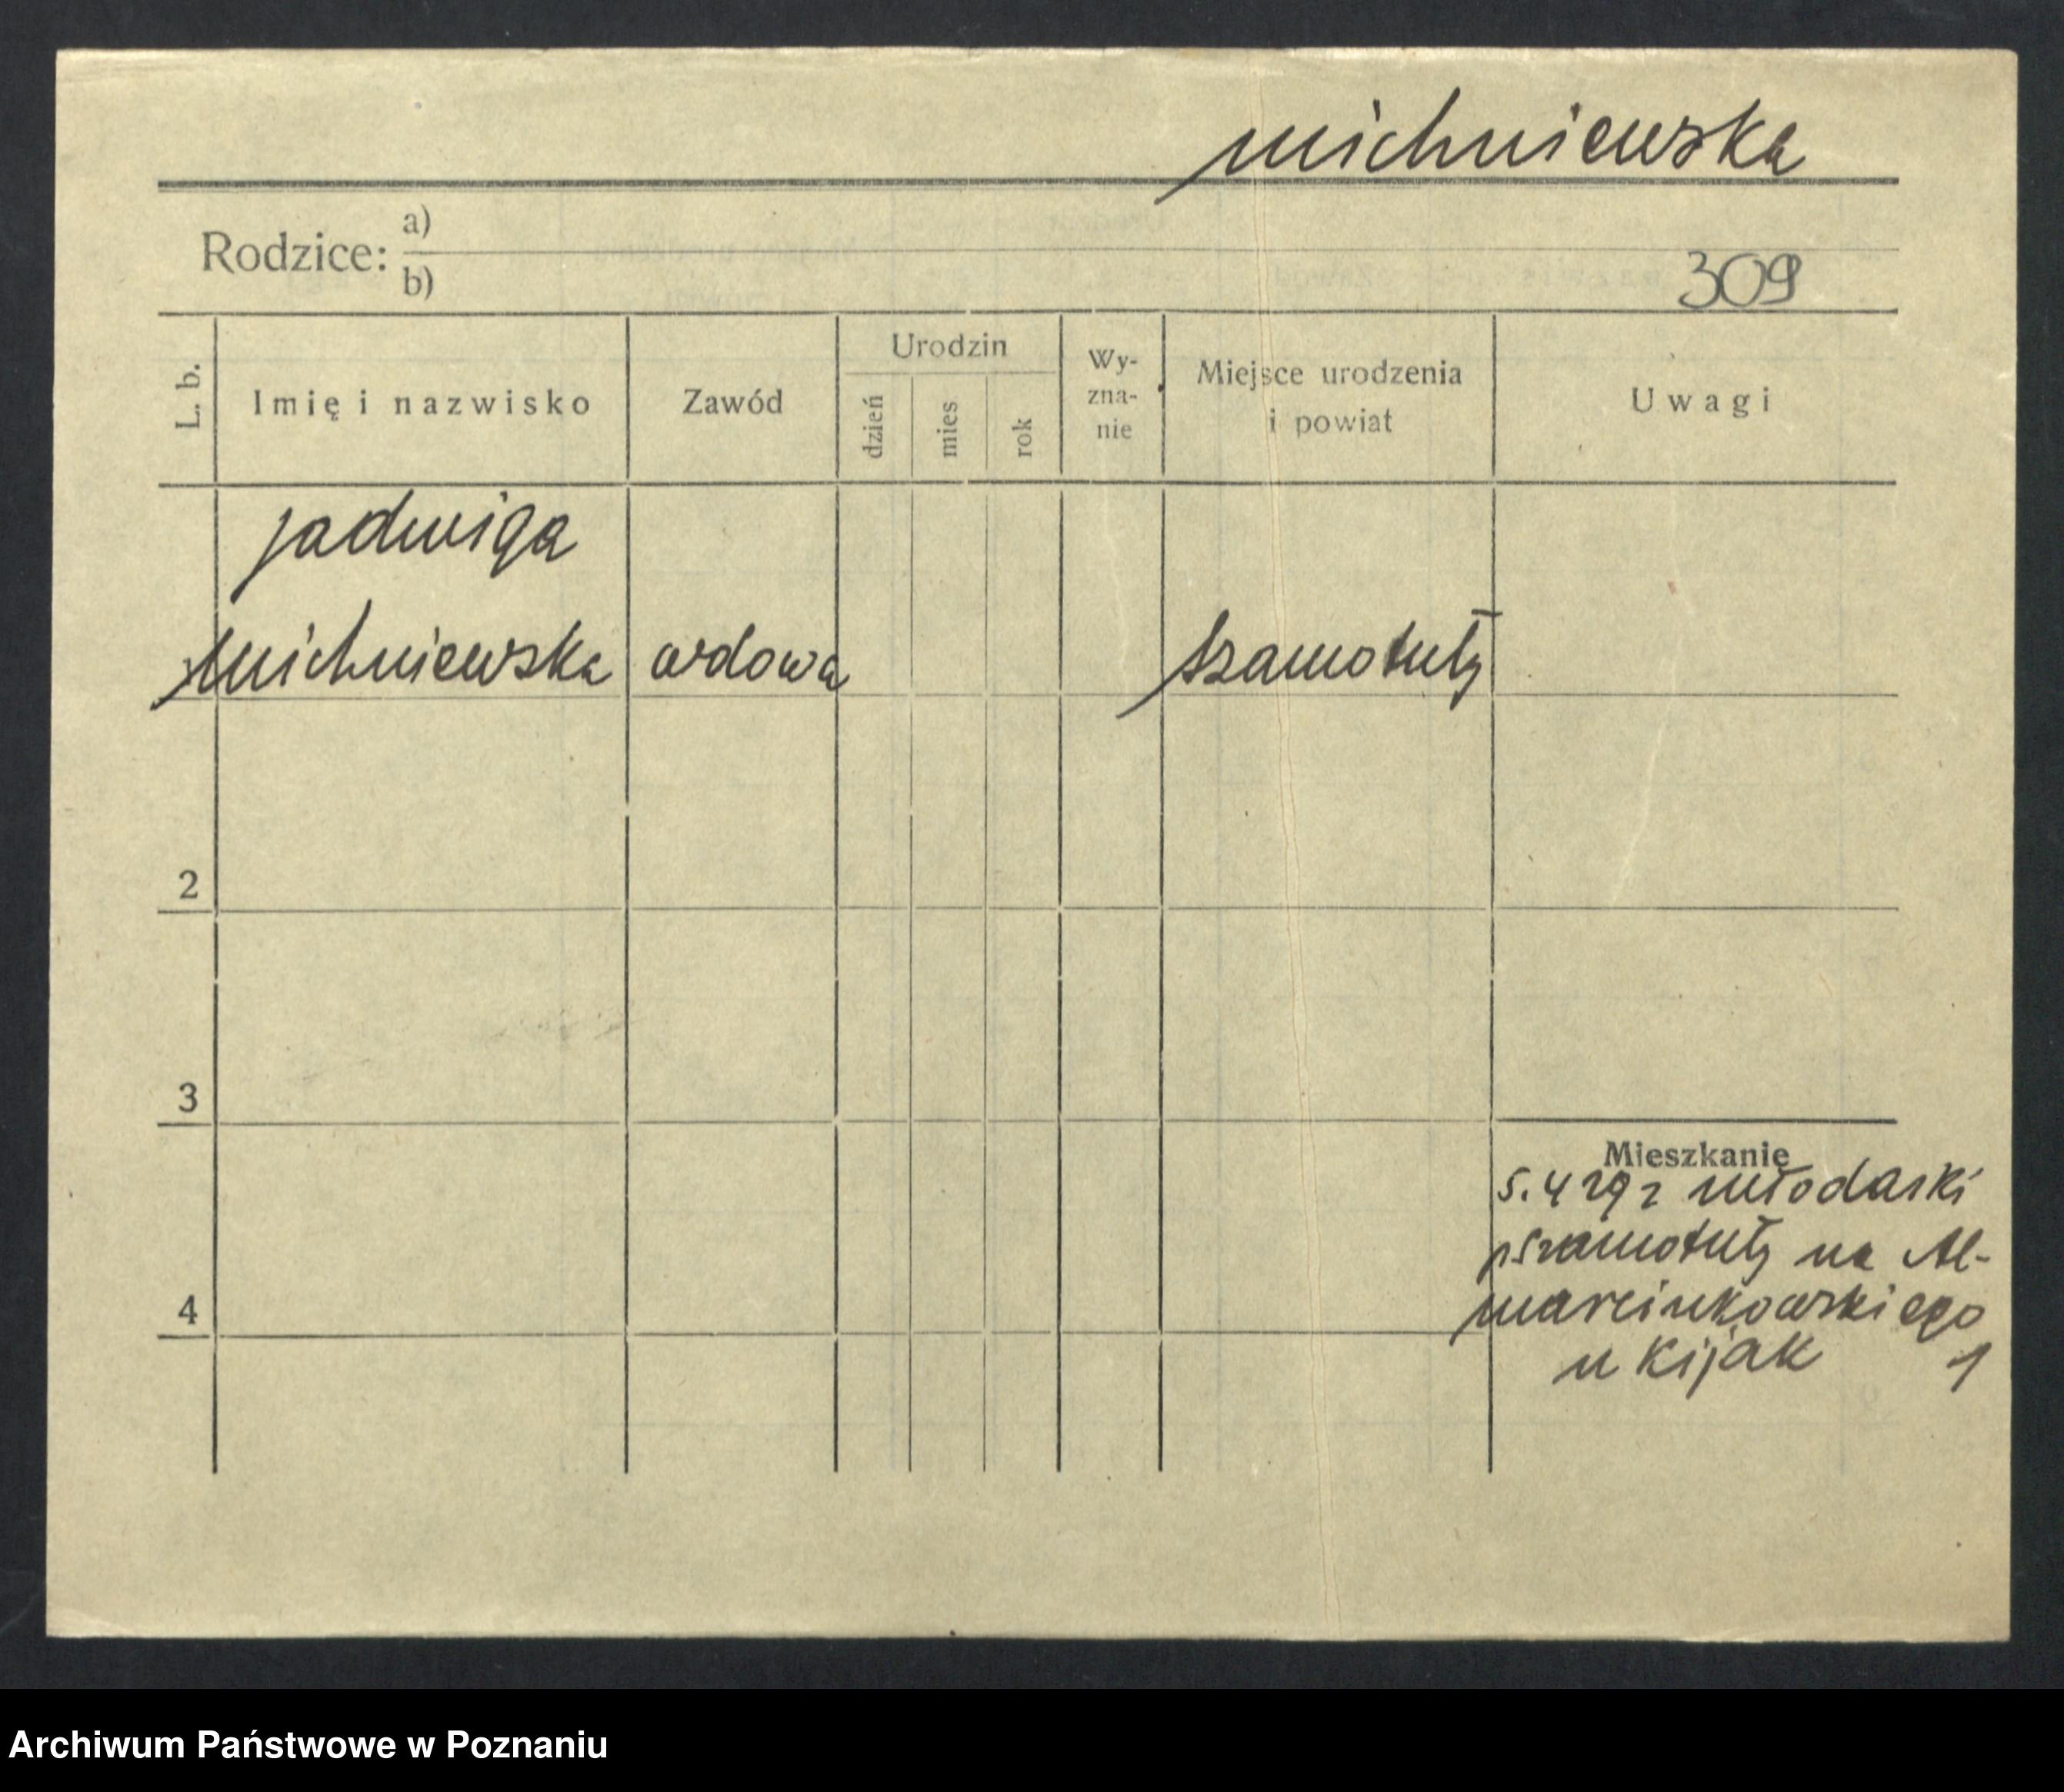 michniewska
Rodzice: a)
b)
309
L. b. Imię i nazwisko Zawód Urodzin dzień mies rok Wy-zna-nie Miejsce urodzenia i powiat Uwagi
jadwiga
michniewska wdowa szamotuły
2
3
Mieszkanie
5.4 29 z młodaski
pszamotuły na Al-
4
marcinkowskiego
u Kijak 1
Archiwum Państwowe w Poznaniu